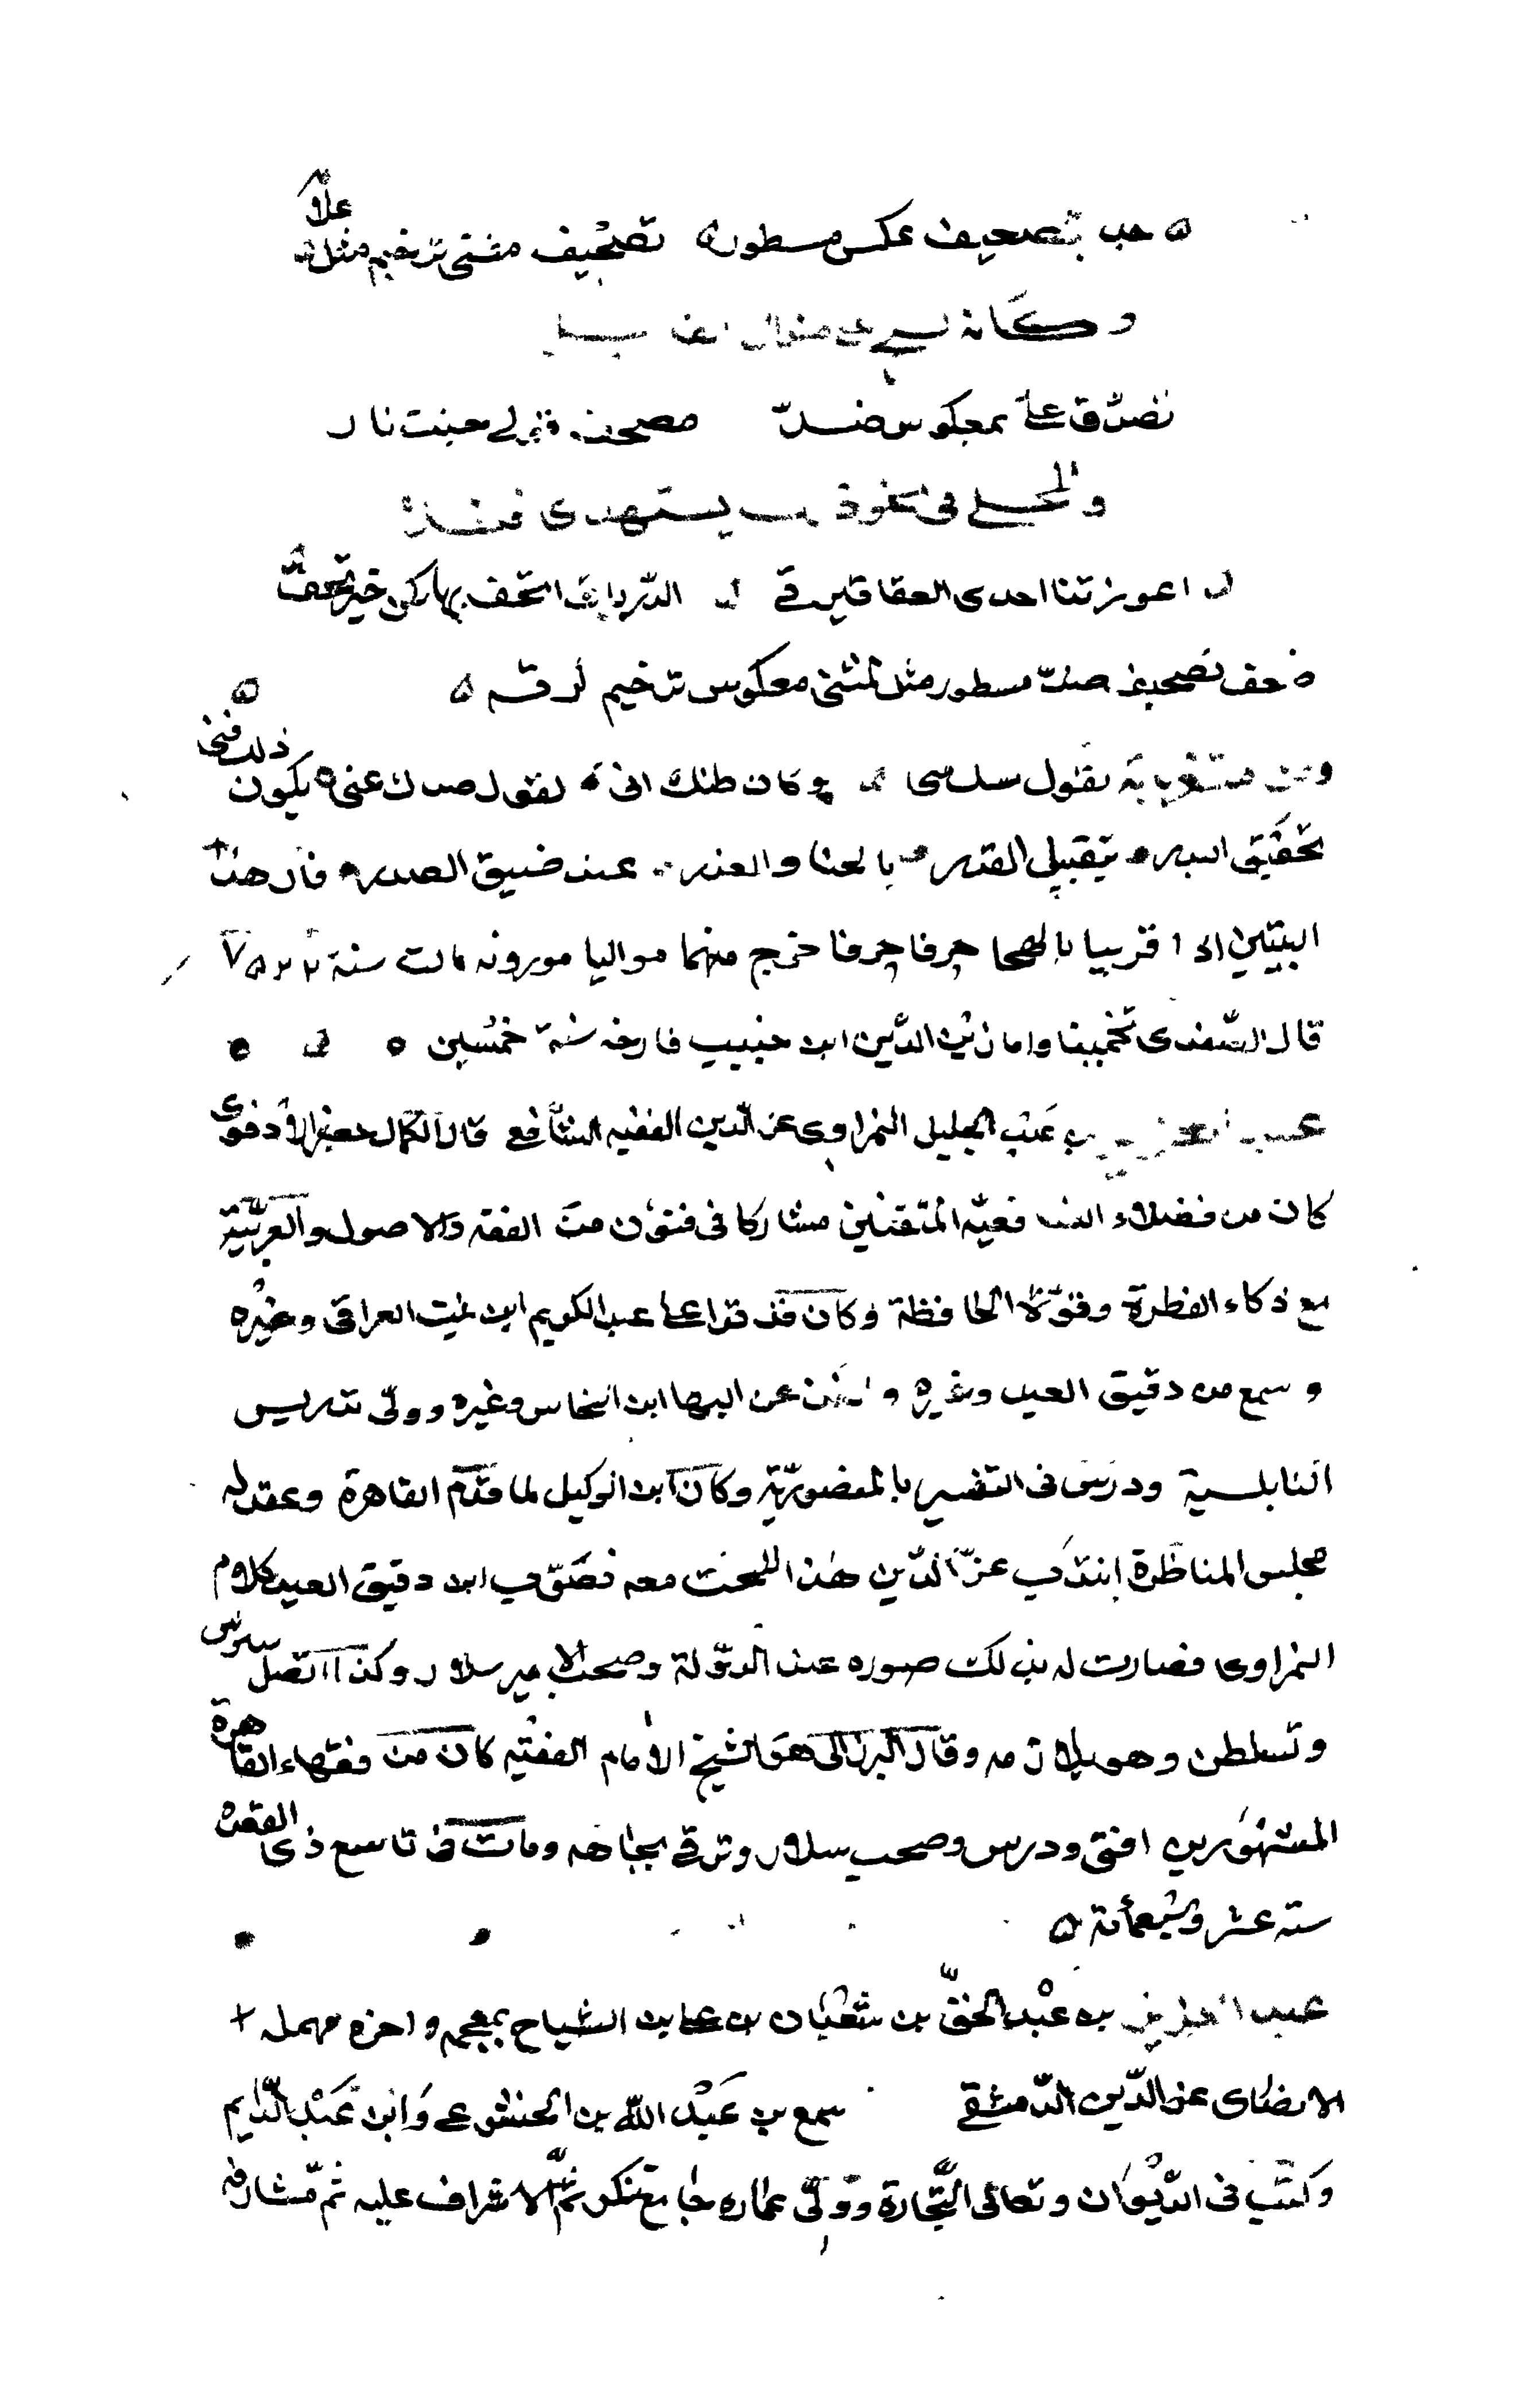 حب بتصحيف عكس مسطوره تصحيف مثنى ترخيم مثل علا
وكانه على منوال
تصدق على بمعكوس ضد مصحف قولي حبنت نار
في يستهدى
اعوزتنا احدى العقاقير في الدرياق اتحف بها كن خير تحف
تصحيف ضد مسطور مثل مثنى معكوس ترخيم لرقم
ومن بقول سدسى وكان ظنك انى لقول صدك عنى يكون ذلك فنى
تحقيق البدر بتقبيل القدر بالحنا والعذر عند ضيق الصدر فان هذا
البيتين اذا قربيا بالهجا حرفا حرفا خرج منهما مواليا موزونه مات سنة
قال الصفدى تخمينا واما زين الدين ابن حبيب فارخه سنة خمسين
عبد العزيز بن عبد الجليل النمراوى عز الدين الفقيه الشافعي قال الكمال جعفر الأدفوى
كان من فضلاء الشافعيه المتقنين مشاركا فى فنون من الفقه والاصول والعربية
مع ذكاء الفطرة وقوة الحافظة وكان قد قرا على عبد الكريم ابن بنت العراقى وغيره
وسمع من دقيق العيد وغيره و عن البها ابن النحاس وغيره وولى تدريس
النابلسية ودرس فى التفسير بالمنصورية وكان ابن الوكيل لما قدم القاهرة وعقد له
مجلس المناظرة انتدب عز الدين هذا للبحث معه فصوب ابن دقيق العيد كلام
النمراوى فصارت له بذلك صوره عند الدولة وصحب الامير سلار وكذا اتصل بيبرس
وتسلطن وهو يلازمه وقال البرزالى هو الشيخ الأمام الفقيه كان من فقهاء القاهرة
المشهورين افتى ودرس وصحب سلار وترقى بجاهه ومات فى تاسع ذى القعدة
سنة عشر وسبعمأئة
عبد العزيز بن عبد الحق بن شعبان بن على بن الشياح بمعجمه واخره مهمله
الانصارى عز الدين الدمشقي سمع من عبد الله بن الخشوعي وابن عبد الدايم
وكتب فى الديوان وتعانى التجارة وتولى عمارة جامع تنكز ثم الاشراف عليه ثم مشارفه